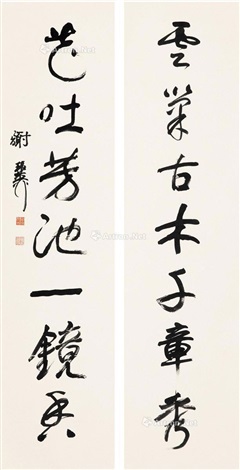 雲古木千章秀
花吐芳池一鏡香
謝稚柳